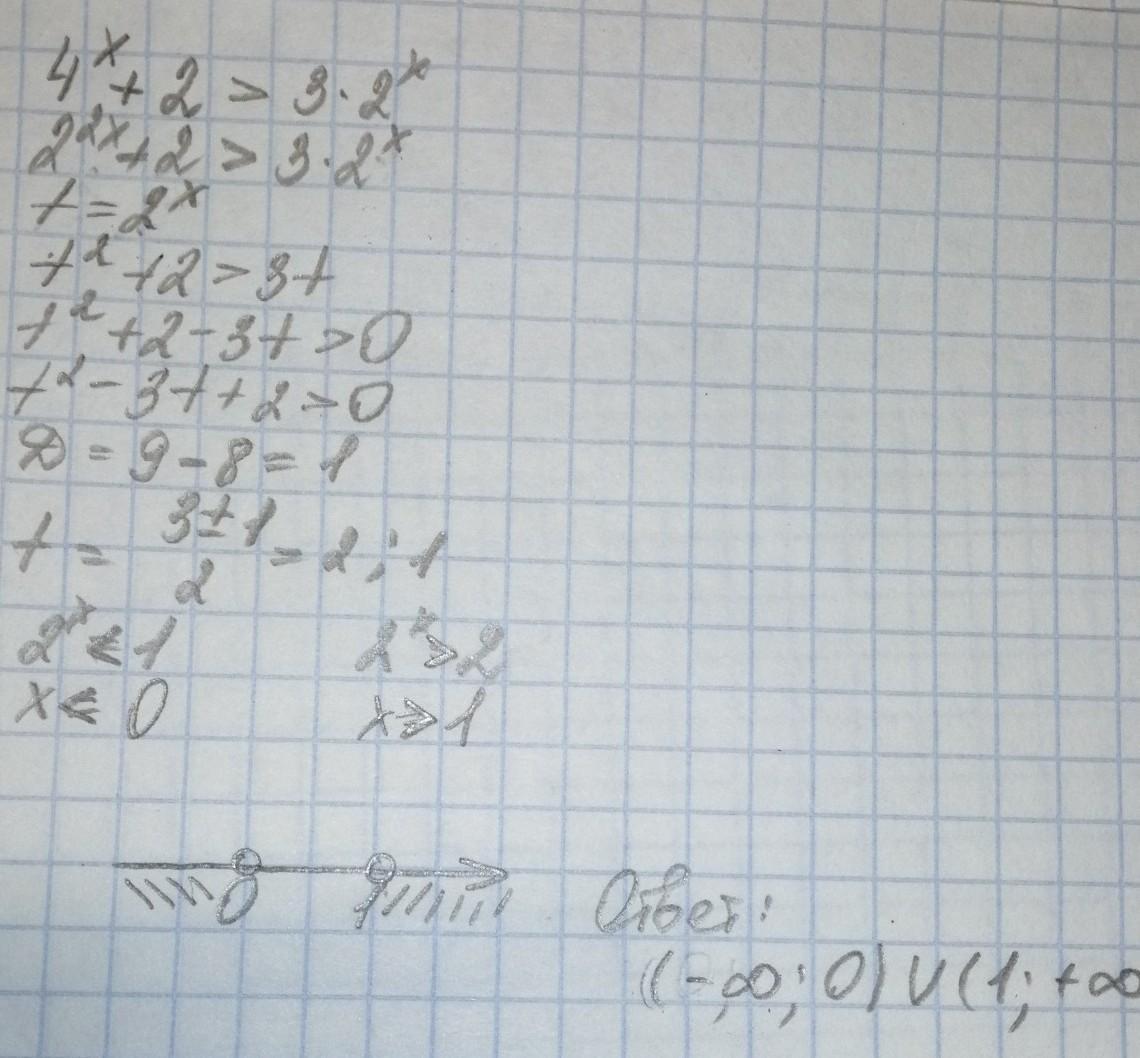 4^x + 2 > 3 · 2^x
2^2x + 2 > 3 · 2^x
t = 2^x
t^2 + 2 > 3t
t^2 + 2 - 3t > 0
t^2 - 3t + 2 > 0
D = 9 - 8 = 1
t = (3 ± 1)/2 = 2 ; 1
2^x < 1 2^x > 2
x ⩽ 0 x ⩾ 1
0 1
Ответ:
(-∞; 0) ∪ (1; +∞